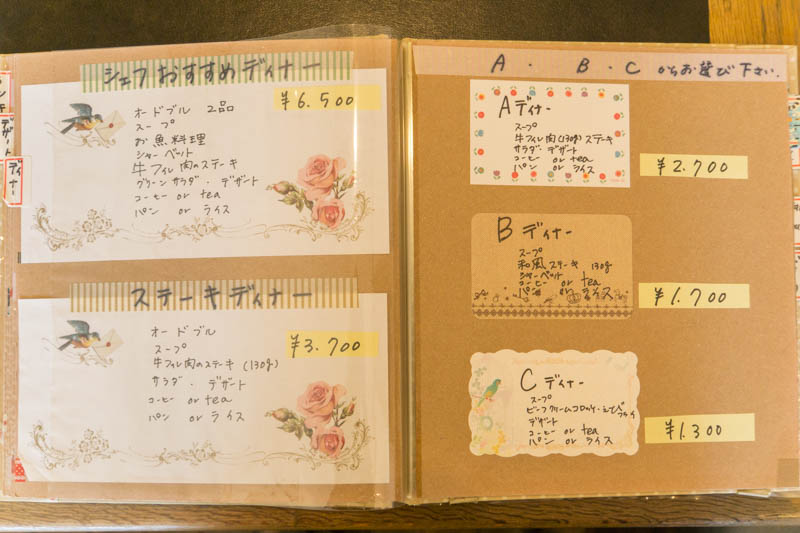 シェフおすすめディナー
¥6.500
オードブル 2品
スープ
お魚料理
シャーベット
牛フィレ肉のステーキ
グリーンサラダ・デザート
コーヒー or tea
パン or ライス
ステーキディナー
¥3.700
オードブル
スープ
牛フィレ肉のステーキ(130g)
サラダ・デザート
コーヒー or tea
パン or ライス
デザート
ディナー
A・B・Cからお選び下さい。
Aディナー
スープ
牛フィレ肉(130g)ステーキ
サラダ・デザート
コーヒー or tea
パン or ライス
¥2.700
Bディナー
スープ
和風ステーキ 130g
シャーベット
コーヒー or tea
パン or ライス
¥1.700
Cディナー
スープ
ビーフクリームコロッケ・えびフライ
デザート
コーヒー or tea
パン or ライス
¥1.300